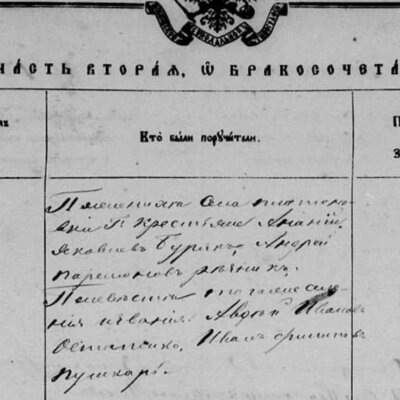 ЧАСТЬ ВТОРАЯ, Ѿ БРАКОСОЧЕТА
Кто были поручители.
П
З
По женихѣ села
крестьяне Ананій
Яковлевъ Бурякъ, Андрей
Парамоновъ
По невѣстѣ того же селе
нія званія: Авдѣй Ивановъ
Остапенко, Иванъ Филиповъ
Пушкарь.